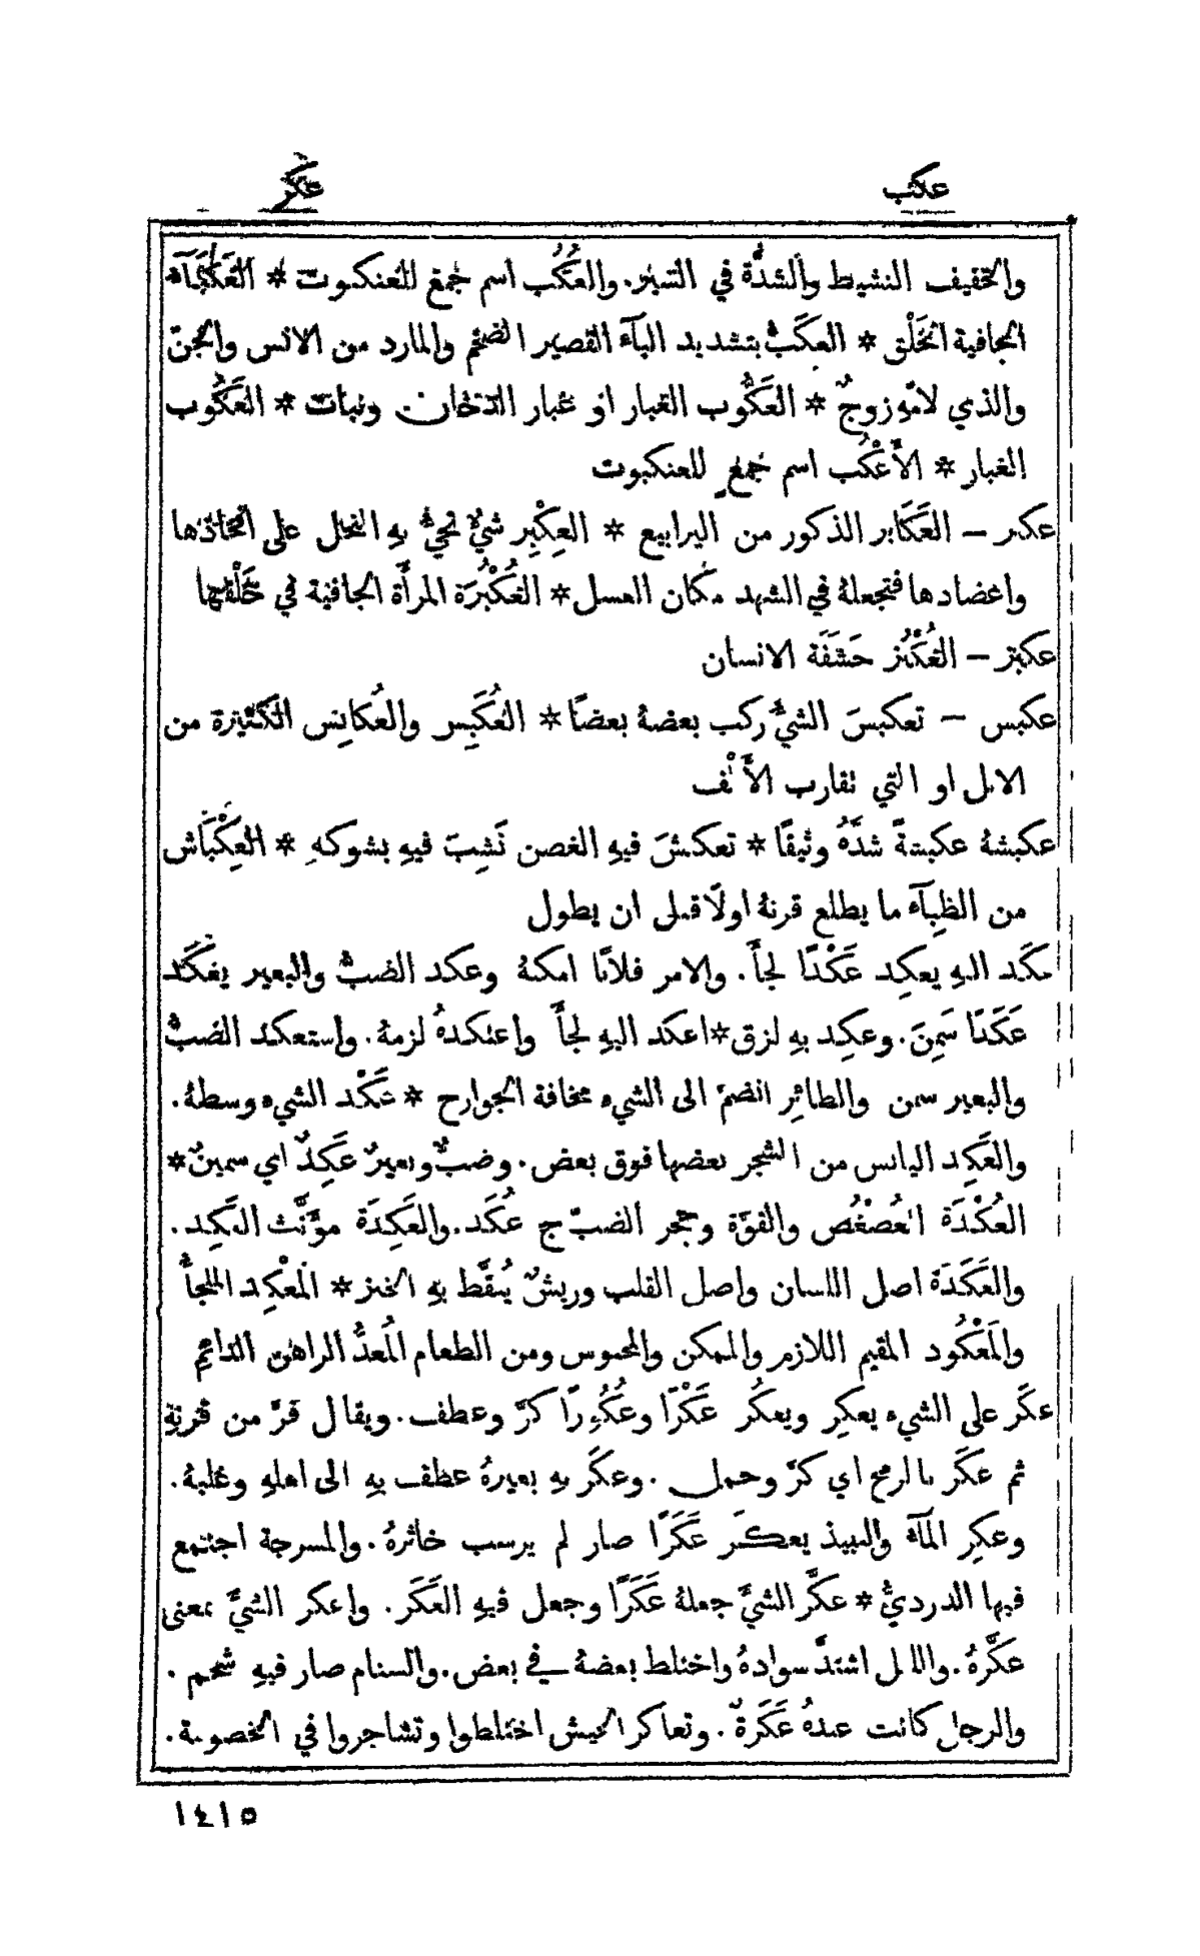 عكب
عكر
والخفيف النشيط والشدَّة في السير. والعُكُب اسم جمع للعنكبوت * العَكْبَآء
الجافية الخَلْق * العِكَبُّ بتشديد البآء القصير الضخم والمارد من الانس والجنّ
والذي لامّهِ زوجٌ * العَكُّوب الغبار او غبار الدخان ونبات * العَكُوب
الغبار * الأَعْكُب اسم جمعٍ للعنكبوت
عكبر – العَكَابر الذكور من اليرابيع * العِكْبِر شيءٌ تجيءُ بهِ النحل على افخاذها
واعضادها فتجعلهُ في الشهد مكان العسل * العُكْبُرَة المرأَة الجافية في خَلْقها
عكبز – العُكْبُز حَشَفَة الانسان
عكبس – تعكبسَ الشيءُ ركب بعضهُ بعضًا * العُكَبِس والعُكابِس الكثيرة من
الابل او التي تقارب الأَلْف
عكبشهُ عكبشةً شدَّهُ وثيقًا * تعكبشَ فيهِ الغصن نَشِبَ فيهِ بشوكهِ * العِكْبَاش
من الظِبآء ما يطلع قرنهُ اولًا قبل ان يطول
عكَد اليهِ يعكِد عَكْدًا لجأَ. والامر فلانًا امكنهُ وعكد الضبُّ والبعير يعكَد
عَكَدًا سَمِنَ. وعكِد بهِ لزق * اعكد اليهِ لجأَ واعتكدهُ لزمهُ. واستعكد الضبُّ
والبعير سمن والطائِر انضمّ الى الشيء مخافة الجوارح * عَكْد الشيء وسطهُ.
والعَكِد اليابس من الشجر بعضها فوق بعض. وضبٌّ وبعيرٌ عَكِدٌ اي سمينٌ *
العُكْدَة العُصْعُص والقوّة وحجر الضبّ ج عُكَد. والعَكِدَة مؤَنَّث العَكِد.
والعَكَدَة اصل اللسان واصل القلب وريشٌ يُنقَّط بهِ الخبز * المَعْكِد الملجأُ
والمَعْكُود المقيم اللازم والممكن والمحبوس ومن الطعام المُعدُّ الراهن الدائم
عكَر على الشيء يعكِر ويعكُر عَكْرًا وعُكُورًا كرَّ وعطف. ويقال فرَّ من قرنهِ
ثم عكَر بالرمح اي كرَّ وحمل. وعكَر بهِ بعيرهُ عطف بهِ الى اهلهِ وغلبهُ.
وعكِر المآء والنبيذ يعكَر عَكَرًا صار لم يرسب خاثرهُ. والمسرجة اجتمع
فيها الدرديُّ * عكَّر الشيءَ جعلهُ عَكَرًا وجعل فيهِ العَكَر. واعكر الشيءَ بمعنى
عكَّرهُ. والليل اشتدَّ سوادهُ واختلط بعضهُ في بعض. والسنام صار فيهِ شحم.
والرجل كانت عندهُ عَكَرةٌ. وتعاكر الجيش اختلطوا وتشاجروا في الخصومة.
١٤١٥